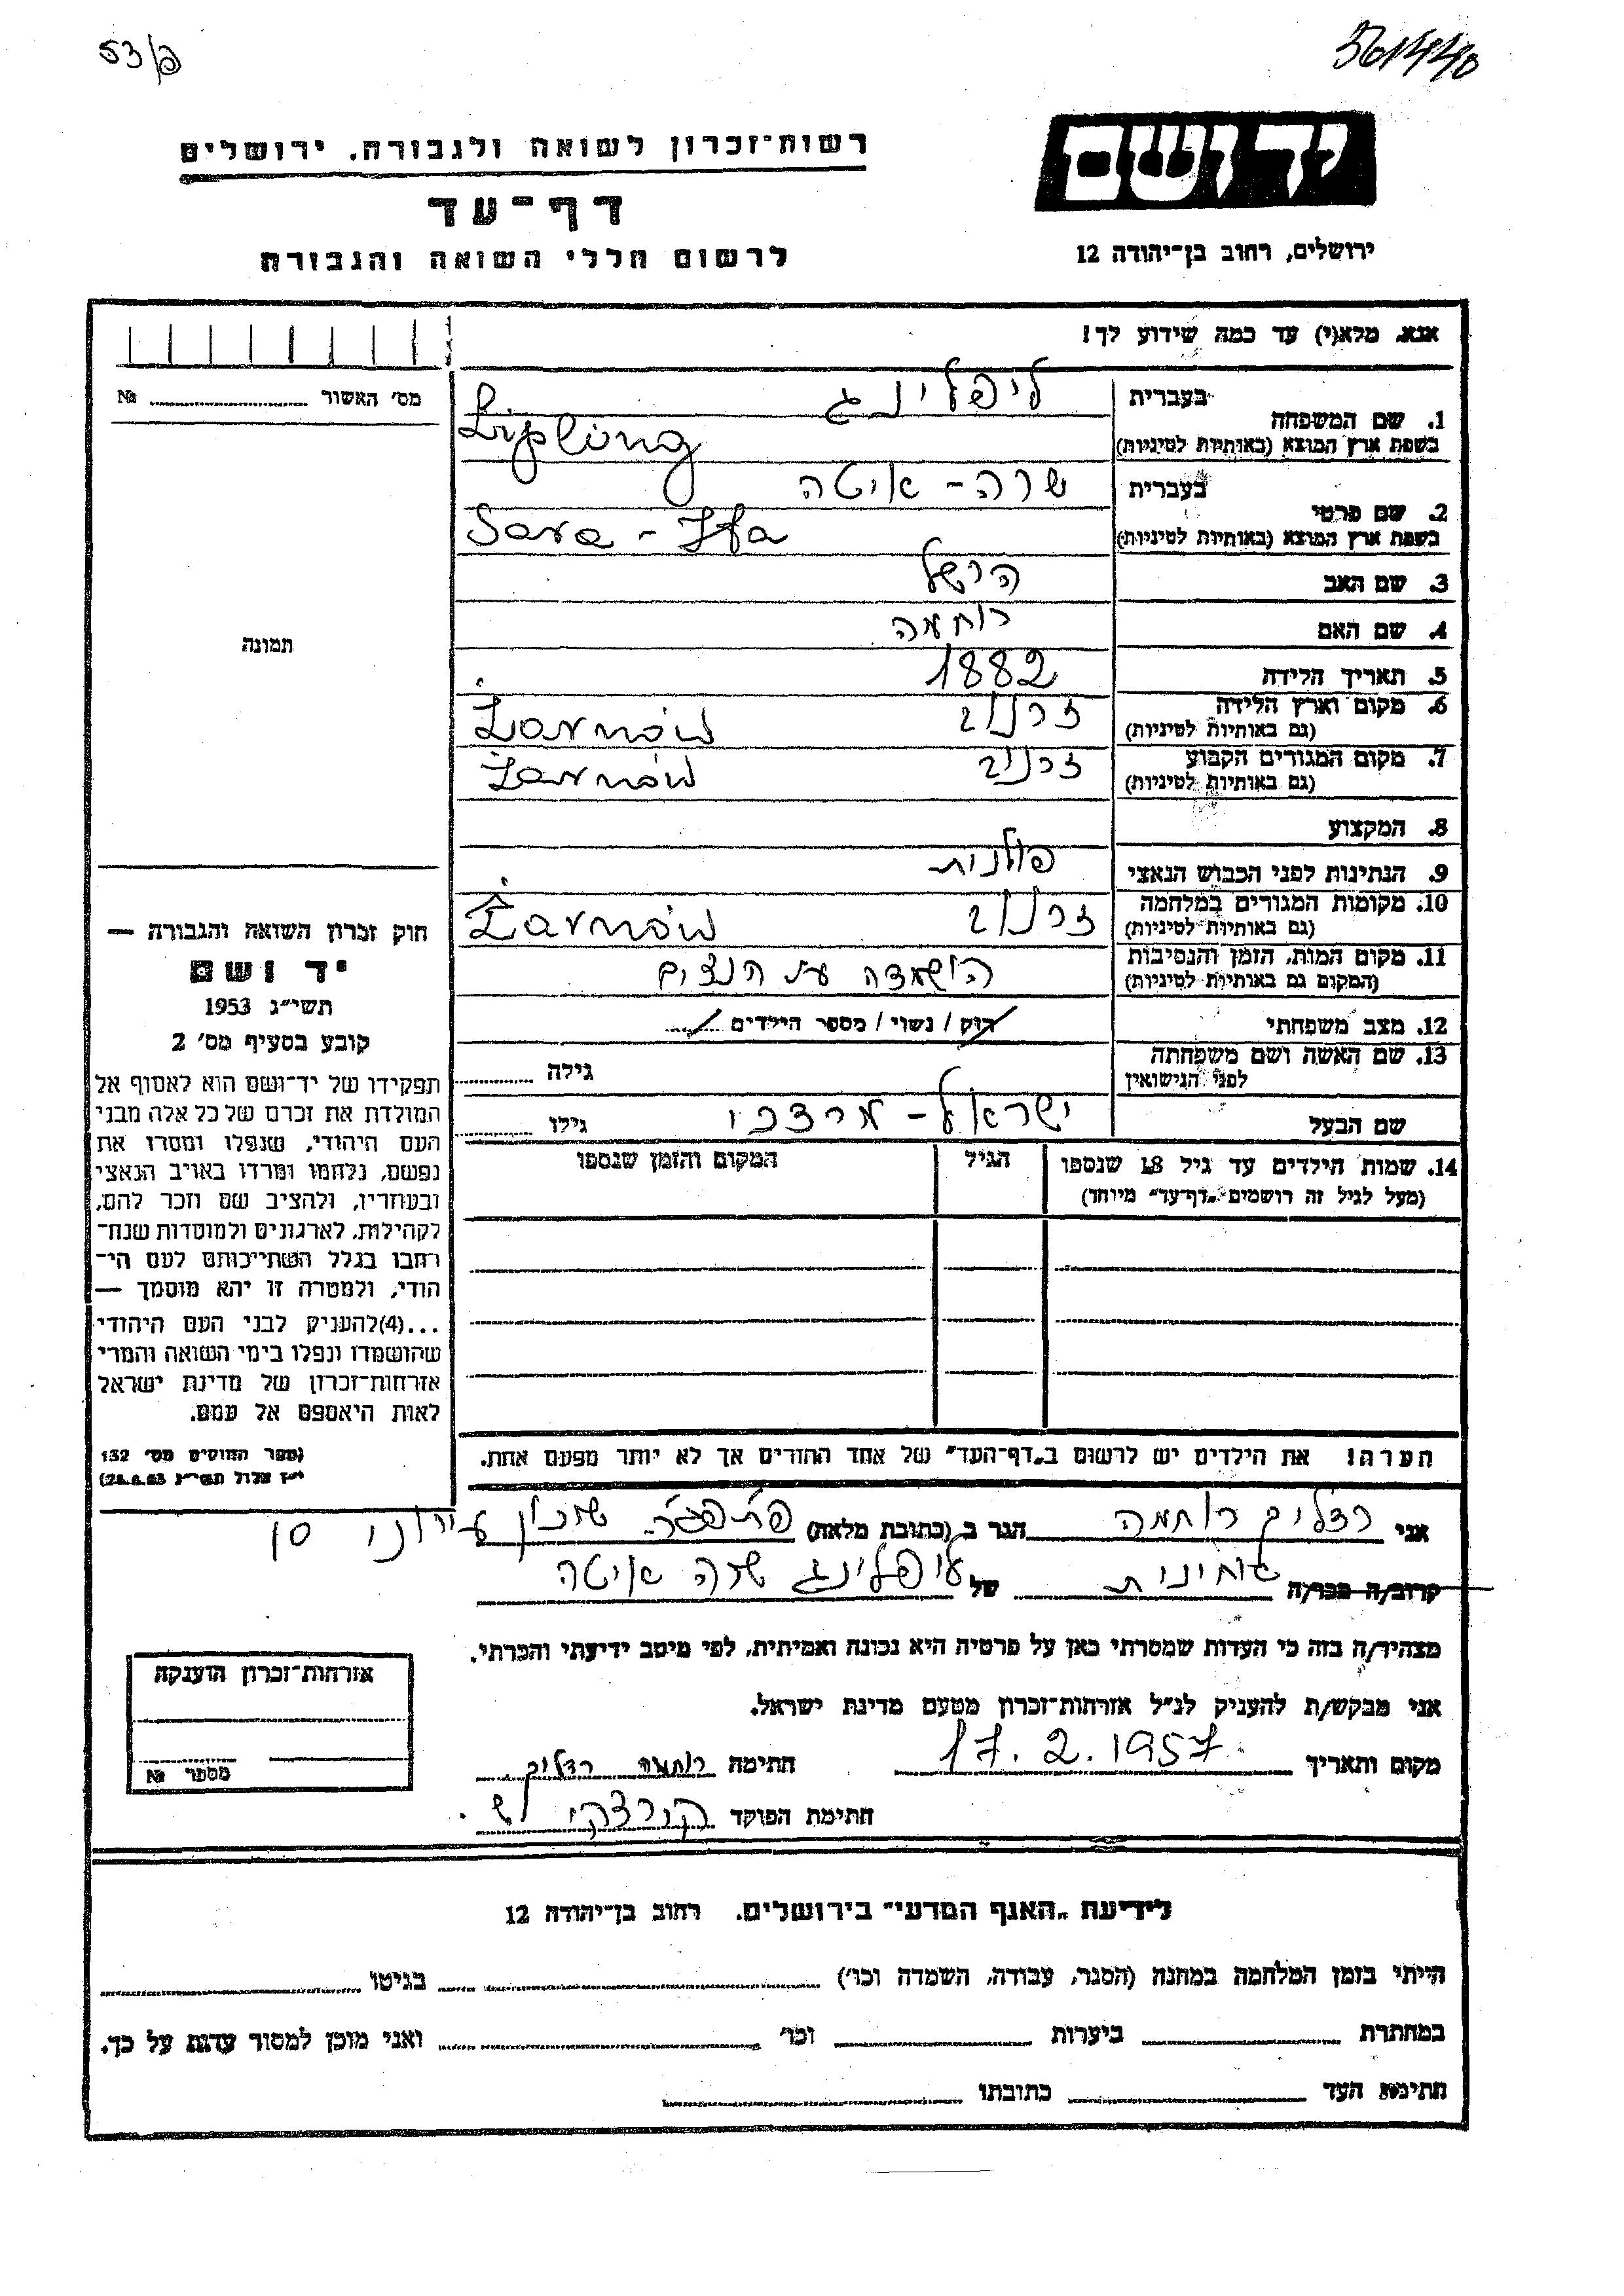 53/פ
רשות־זכרון לשואה ולגבורה. ירושלים
דף־עד
לרשום חללי השואה והגבורה
יד ושם
ירושלים, רחוב בן־יהודה 12
אנא, מלא(י) עד כמה שידוע לך!
מס' האשור № 
תמונה
חוק זכרון השואה והגבורה —
יד ושם
תשי״ג 1953
קובע בסעיף מס' 2
תפקידו של יד־ושם הוא לאסוף אל
המולדת את זכרם של כל אלה מבני
העם היהודי, שנפלו ומסרו את
נפשם, נלחמו ומרדו באויב הנאצי
ובעוזריו, ולהציב שם וזכר להם,
לקהילות, לארגונים ולמוסדות שנח־
רבו בגלל השתייכותם לעם הי־
הודי, ולמטרה זו יהא מוסמך —
...(4)להעניק לבני העם היהודי
שהושמדו ונפלו בימי השואה והמרי
אזרחות־זכרון של מדינת ישראל
לאות היאספם אל עמם.
(ספר החוקים מס' 132
י״ז אלול תשי״ג 28.8.53)
1. שם המשפחה בעברית ליפלינג
בשפת ארץ המוצא (באותיות לטיניות) Lipling
2. שם פרטי בעברית שרה - איטה
בשפת ארץ המוצא (באותיות לטיניות) Sara - Ita
3. שם האב הרשל
4. שם האם רוחמה
5. תאריך הלידה 1882
6. מקום וארץ הלידה (גם באותיות לטיניות) זרנוב Żarnów
7. מקום המגורים הקבוע (גם באותיות לטיניות) זרנוב Żarnów
8. המקצוע
9. הנתינות לפני הכבוש הנאצי פולנית
10. מקומות המגורים במלחמה (גם באותיות לטיניות) זרנוב Żarnów
11. מקום המות, הזמן והנסיבות (המקום גם באותיות לטיניות) הושמדה ע״י הנצים
12. מצב משפחתי רוק / נשוי / מספר הילדים
13. שם האשה ושם משפחתה לפני הנישואין גילה
שם הבעל ישראל - מרדכי גילו
14. שמות הילדים עד גיל 18 שנספו הגיל המקום והזמן שנספו
(מעל לגיל זה רושמים „דף־עד״ מיוחד)
הערה! את הילדים יש לרשום ב„דף־העד״ של אחד ההורים אך לא יותר מפעם אחת.
אני רוחמה הגר ב (כתובת מלאה) שכון עירוני
קרוב/ה מכר/ה של ליפלינג שרה איטה
מצהיר/ה בזה כי העדות שמסרתי כאן על פרטיה היא נכונה ואמיתית, לפי מיטב ידיעתי והכרתי.
אני מבקש/ת להעניק לנ״ל אזרחות־זכרון מטעם מדינת ישראל.
מקום ותאריך 17.2.1957 חתימה רוחמה
חתימת הפוקד
אזרחות־זכרון הוענקה
מספר №
לידיעת „האגף המדעי״ בירושלים. רחוב בן־יהודה 12
הייתי בזמן המלחמה במחנה (הסגר, עבודה, השמדה וכו') בגיטו
במחתרת ביערות וכו' ואני מוכן למסור עדות על כך.
חתימת העד כתובתו